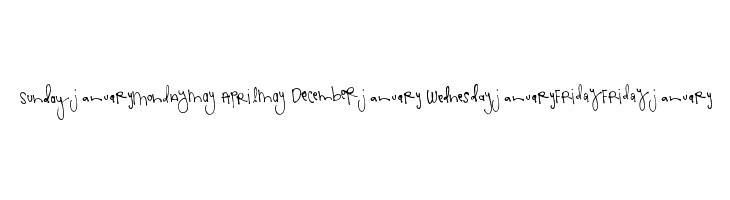 Sunday january Monday May April May December january Wednesday january Friday Friday january